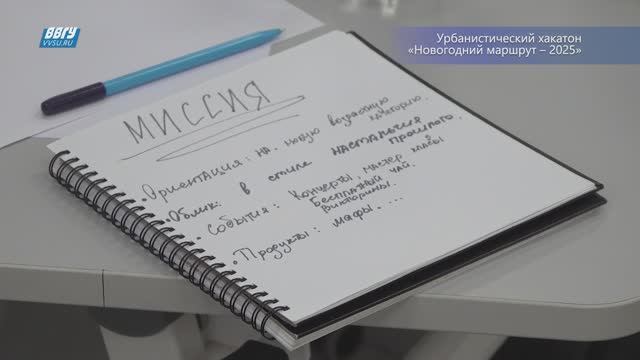 ВВГУ
VVSU.RU
Урбанистический хакатон
«Новогодний маршрут – 2025»
МИССИЯ
• Ориентация: на новую возрастную категорию.
• Облик: в стиле настальгия прошлого.
• События: Концерты, мастер классы
Бесплатный чай.
Викторины.
• Продукты: мафы. ...